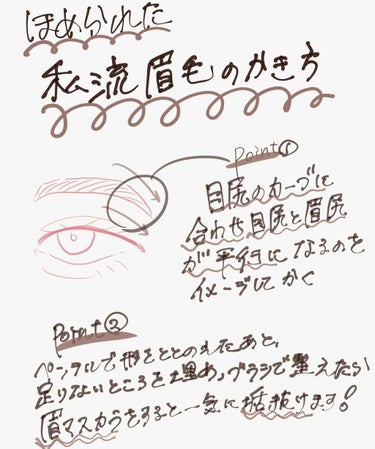 ほめられた
私流眉毛のかき方
point①
目尻のカーブに
合わせ目尻と眉尻
が平行になるのを
イメージしてかく
point②
ペンシルで形をととのえたあと、
足りないところを埋め、ブラシで整えたら
眉マスカラをすると一気に垢抜けます!